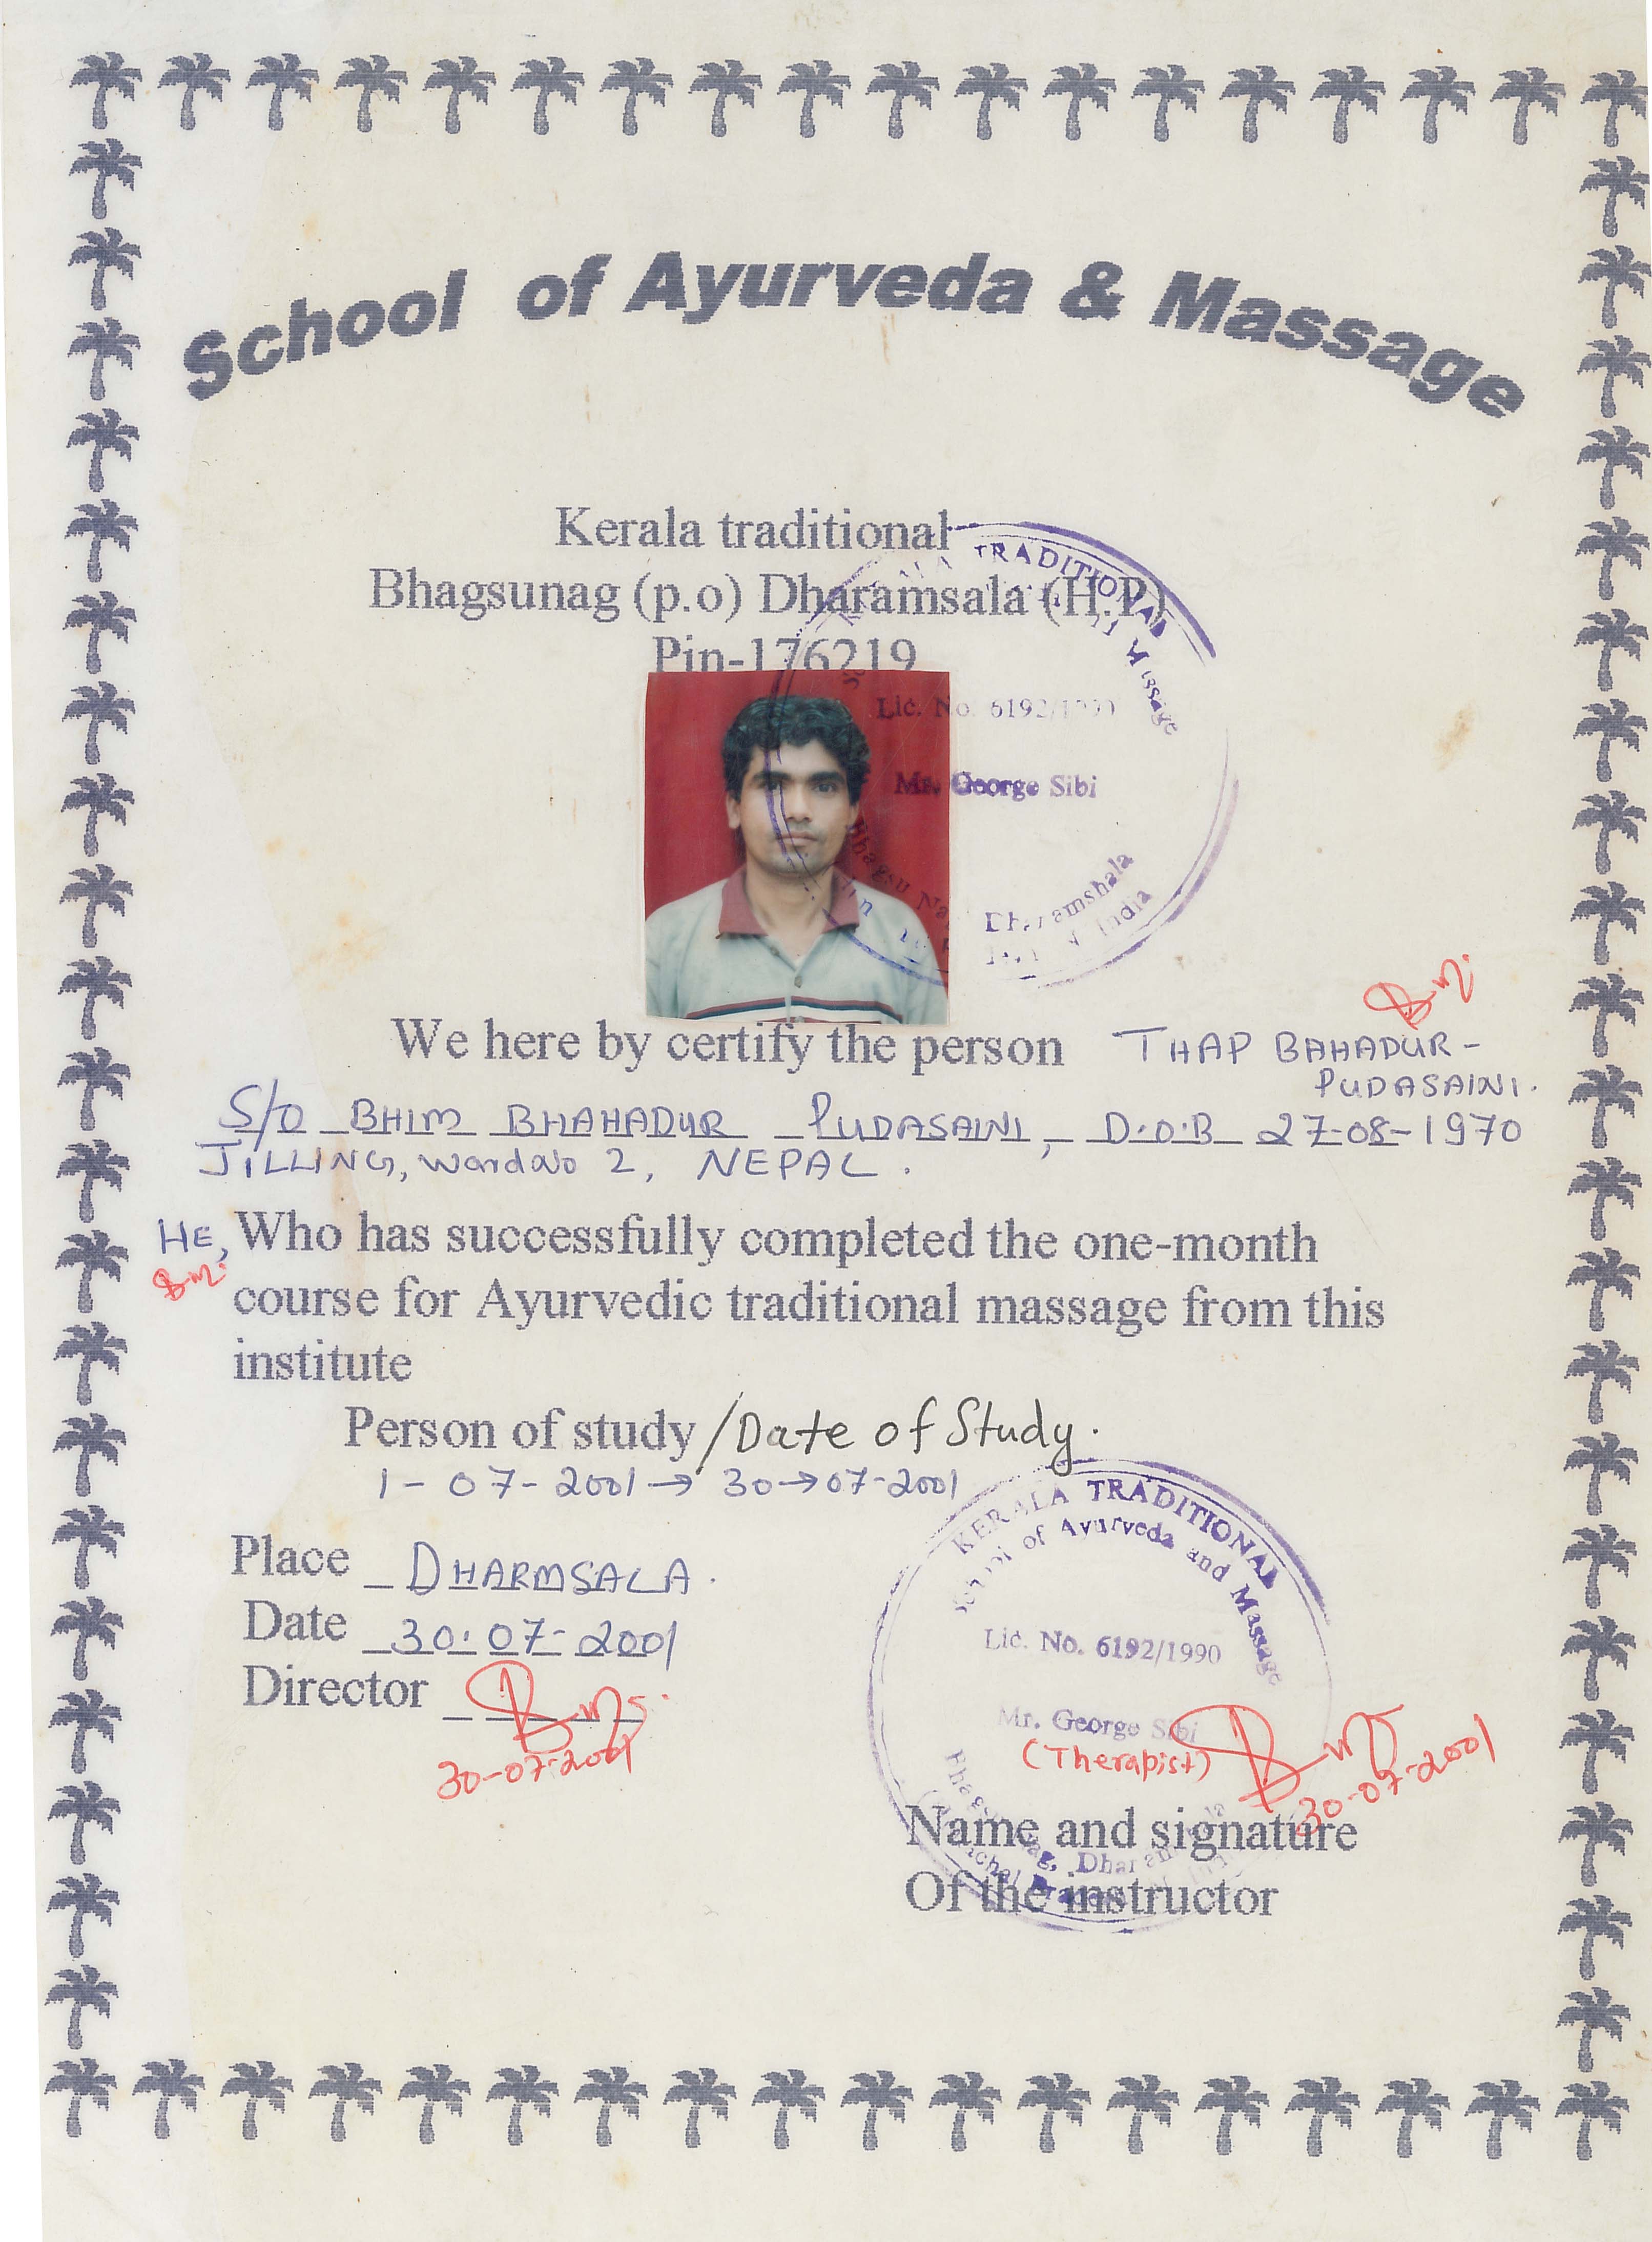 School of Ayurveda & Massage
Kerala traditional
Bhagsunag (p.o) Dharamsala (H.P)
Pin-176219
TRADITIONAL
Massage
Lic. No. 6192/1990
Mr. George Sibi
Bhagsu Na
Dharamshala
India
We here by certify the person THAP BAHADUR-
PUDASAINI.
S/O BHIM BHAHADUR PUDASAINI, D.O.B 27-08-1970
JILLING, Ward No 2, NEPAL.
HE, Who has successfully completed the one-month
course for Ayurvedic traditional massage from this
institute
Person of study/Date of Study.
1-07-2001→30→07-2001
KERALA TRADITIONAL
School of Ayurveda and Massage
Place DHARMSALA.
Lic. No. 6192/1990
Date 30.07-2001
Director
Mr. George Sibi
(Therapist)
30-07-2001
30-07-2001
Name and signature
Of the instructor